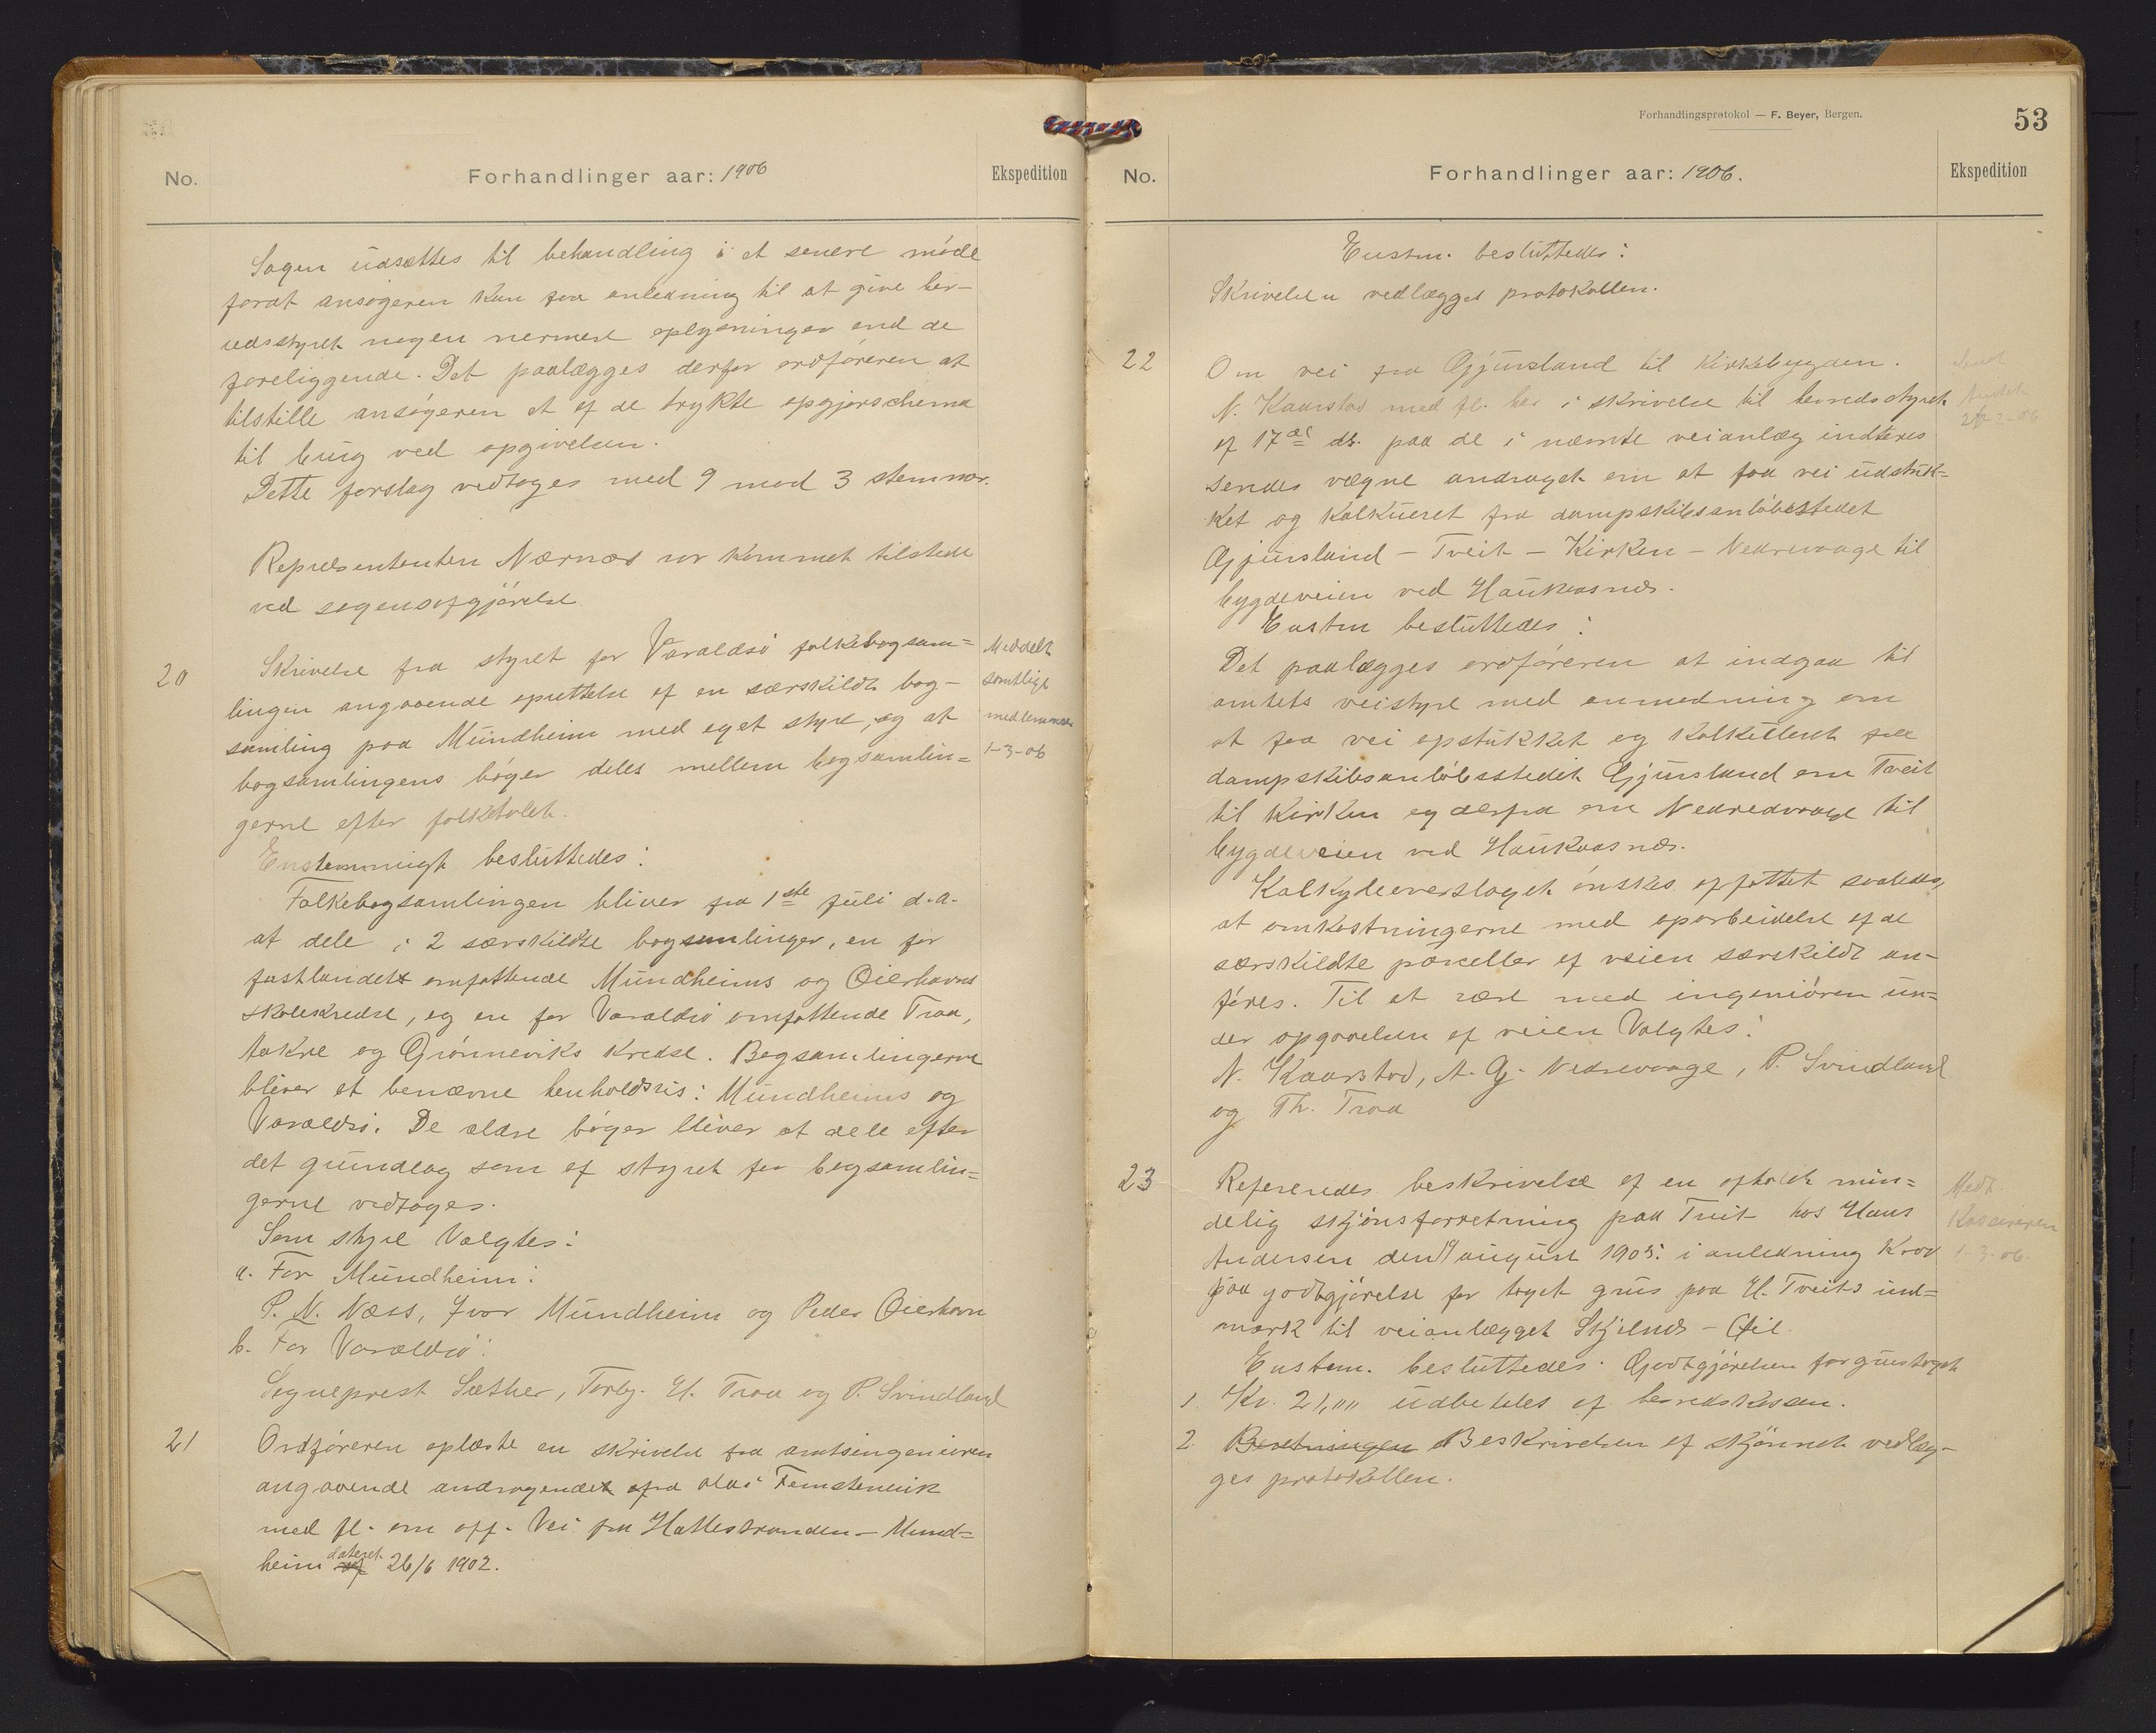 No.
Forhandlinger aar: 1906
Ekspedition
Sagen udsættes til behandling i et senere møde
forat ansøgeren kan faa anledning til at give her-
redsstyret nogen nermere oplysninger end de
foreliggende. Det paalægges derfor ordføreren at
tilstille ansøgeren et af de trykte opgjørschema
til brug ved opgivelsen.
Dette forslag vedtoges med 9 mod 3 stemmer.
Represententen Nærnæs var kommet tilstede
ved sagens afgjörelse
20
Skrivelse fra styret for Varaldsö folkebogsam=
lingen angaaende oprettelse af en særskildt bog-
samling paa Mundheim med eget styre, og at
bogsamlingens böger deles mellem bogsamlin=
gerne efter folketalet.
Meddelt
samtlige
medlemmer
1-3-06
Enstemmigt besluttedes:
Folkebogsamlingen bliver fra 1ste juli d.a.
at dele i 2 særskildte bogsamlinger, en for
fastlandet omfattende Mundheims og Öierhavns
skolekredse, og en for Varaldsö omfattende Traa,
Aakre og Grönneviks kredse. Bogsamlingerne
bliver at benævne henholdsvis: Mundheims og
Varaldsö. De ældre böger bliver at dele efter
det grundlag som af styret for bogsamlin=
gerne vedtages.
Som styre Valgtes:
a. For Mundheim:
P. N. Næss, Ivar Mundheim og Peder Öierhavn
b. For Varaldsö:
Sogneprest Sæther, Torbj. H. Traa og P. Svindland
21
Ordföreren oplæste en skrivelse fra amtsingeniören
angaaende andragendet fra Olai Femstenevik
med fl. om off. Vei fra Hattestranden - Mund=
heim dateret 26/6 1902.
Forhandlingsprotokol — F. Beyer, Bergen.
53
No.
Forhandlinger aar: 1906.
Ekspedition
Enstm. besluttedes:
Skrivelsen vedlægges protokollen.
22
Om vei fra Gjursland til Kirkebygden.
N. Kaarstad med fl. har i skrivelse til herredsstyret
af 17de ds. paa de i nævnte veianlæg indteres
seredes vegne andraget om at faa vei udstuk=
ket og kalkueret fra dampskibsanlöbsstedet
Gjursland - Tveit - Kirken - Nedrevaage til
bygdeveien ved Haukaasnæs.
Amtet
26-2-06
Enstm besluttedes:
Det paalægges ordföreren at indgaa til
amtets veistyre med anmodning om
at faa vei opstukket og kalkuleret fra
dampskibsanlöbsstedet Gjursland om Tveit
til Kirken og derfra om Nedrevaage til
bygdeveien ved Haukaasnæs.
Kalkyleoverslaget önskes opfattet saaledes,
at omkostningerne med oparbeidelse af de
særskildte parceller af veien særskildt an-
föres. Til at være med ingeniören un=
der opgaaelsen af veien Valgtes:
N. Kaarstad, A. G. Nedrevaage, P. Svindland
og Th. Traa
23
Refereredes beskrivelse af en afholdt min=
delig skjönsforretning paa Tveit hos Hans
Andersen den august 1905. i anledning Krav
paa godtgjörelse for taget grus paa H. Tveits ind=
mark til veianlægget Skjelnæs - Öie.
Medt
Kassereren
1-3-06.
Enstem. besluttedes. Godtgjörelsen for grustaget
1. Kr. 21,00 udbetales af herredskassen.
2. Beretningen Beskrivelsen af skjönnet vedlæg-
ges protokollen.